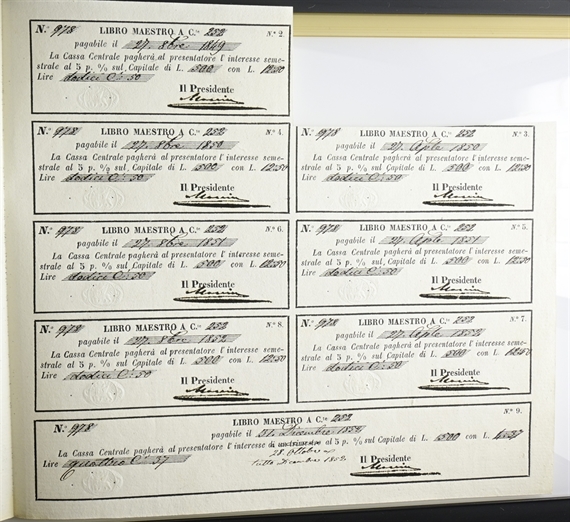 N.° 978 LIBRO MAESTRO A C.te 252 N.° 2.
pagabile il 27. 8bre 1849
La Cassa Centrale pagherà al presentatore l'interesse seme-
strale al 5 p. % sul Capitale di L. 500 con L. 12:50
Lire dodici C.i 50
Il Presidente
N.° 978 LIBRO MAESTRO A C.te 252 N.° 4.
pagabile il 27. 8bre 1850
La Cassa Centrale pagherà al presentatore l'interesse seme-
strale al 5 p. % sul Capitale di L. 500 con L. 12:50
Lire dodici C.i 50
Il Presidente
N.° 978 LIBRO MAESTRO A C.te 252 N.° 3.
pagabile il 27. Aple 1850
La Cassa Centrale pagherà al presentatore l'interesse seme-
strale al 5 p. % sul Capitale di L. 500 con L. 12:50
Lire dodici C.i 50
Il Presidente
N.° 978 LIBRO MAESTRO A C.te 252 N.° 6.
pagabile il 27. 8bre 1851
La Cassa Centrale pagherà al presentatore l'interesse seme-
strale al 5 p. % sul Capitale di L. 500 con L. 12:50
Lire dodici C.i 50
Il Presidente
N.° 978 LIBRO MAESTRO A C.te 252 N.° 5.
pagabile il 27. Aple 1851
La Cassa Centrale pagherà al presentatore l'interesse seme-
strale al 5 p. % sul Capitale di L. 500 con L. 12:50
Lire dodici C.i 50
Il Presidente
N.° 978 LIBRO MAESTRO A C.te 252 N.° 8.
pagabile il 27. 8bre 1852
La Cassa Centrale pagherà al presentatore l'interesse seme-
strale al 5 p. % sul Capitale di L. 500 con L. 12:50
Lire dodici C.i 50
Il Presidente
N.° 978 LIBRO MAESTRO A C.te 252 N.° 7.
pagabile il 27. Aple 1852
La Cassa Centrale pagherà al presentatore l'interesse seme-
strale al 5 p. % sul Capitale di L. 500 con L. 12:50
Lire dodici C.i 50
Il Presidente
N.° 978 LIBRO MAESTRO A C.te 252 N.° 9.
pagabile il 31. Dicembre 1852
La Cassa Centrale pagherà al presentatore l'interesse di un trimestre al 5 p. % sul Capitale di L. 500 con L. 4:37
Lire quattro C.i 37 28. Ottobre a
tutto Dicembre 1852 Il Presidente